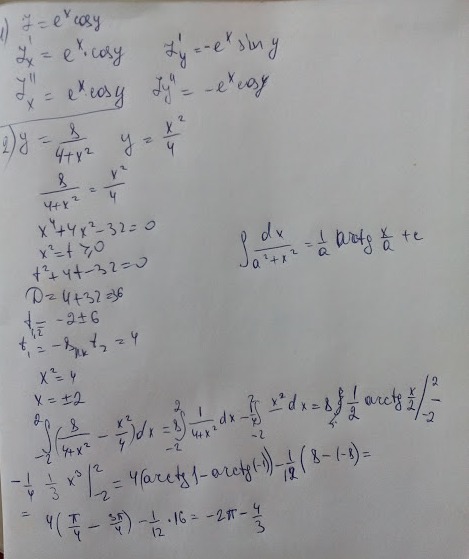 1) Z = e^x cosy
Z'_x = e^x · cosy Z'_y = -e^x sin y
Z''_x = e^x · cosy Z''_y = -e^x cosy
2) y = 8/(4+x^2) y = x^2/4
8/(4+x^2) = x^2/4
x^4+4x^2-32=0
x^2=t ≥0
t^2+4t-32=0
∫ dx/(a^2+x^2) = 1/a arctg x/a + c
D=4+32=36
t_1,2 = -2±6
t_1 = -8 t_2 = 4
x^2=4
x=±2
∫_-2^2 (8/(4+x^2) - x^2/4)dx = 8∫_-2^2 1/(4+x^2) dx - 1/4 ∫_-2^2 x^2 dx = 8 1/2 arctg x/2 |_-2^2 -
-1/4 1/3 x^3 |_-2^2 = 4(arctg1-arctg(-1)) - 1/12 (8-(-8) =
= 4(π/4 - 3π/4) - 1/12 · 16 = -2π - 4/3